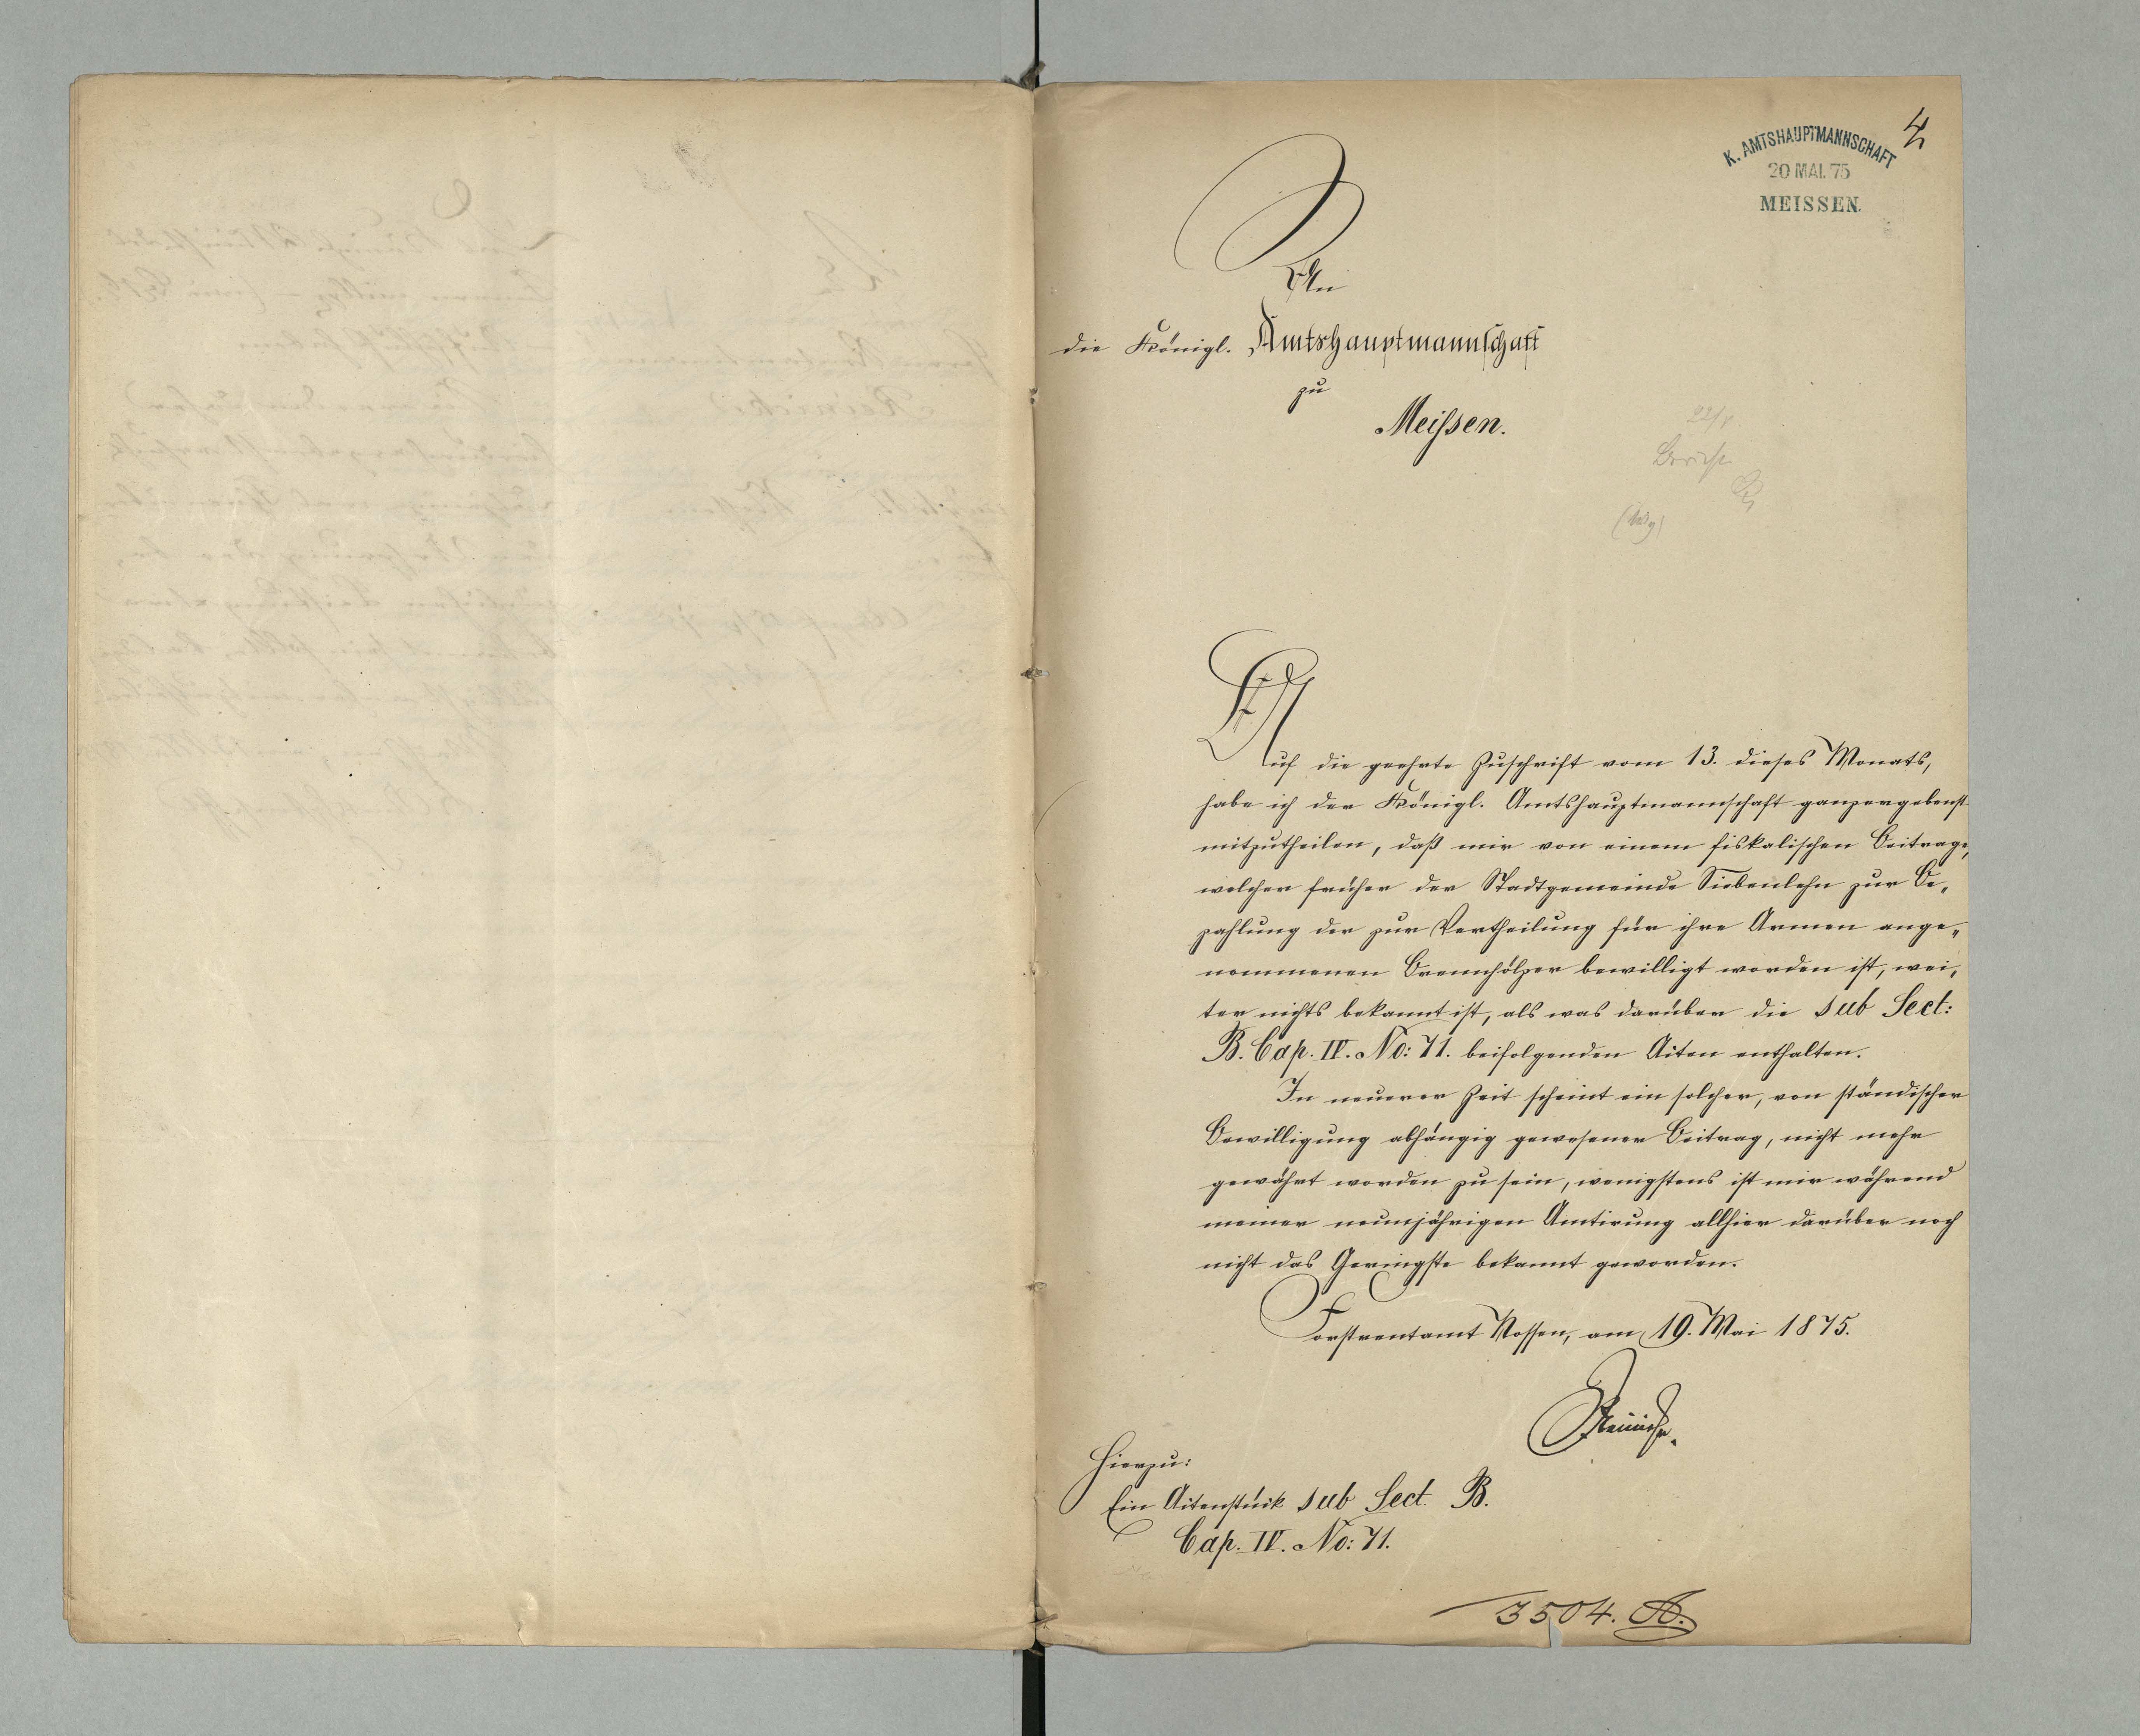 4
K. AMTSHAUPTMANNSCHAFT
20 MAI. 75
MEISSEN.
An
die Königl. Amtshauptmannschaft
zu
Meißen.
22/5
Auf die geehrte Zuschrift vom 13. dieses Monats,
habe ich der Königl. Amtshauptmannschaft ganz ergebenst
mitzutheilen, daß mir von einem fiskalischen Beitrage,
welcher früher der Stadtgemeinde Siebenlehn zur Be„
zahlung der zur Vertheilung für ihre Armen ange„
nommenen Brennhölzer bewilligt worden ist, wei„
ter nichts bekannt ist, als was darüber die sub Sect:
B. Cap. IV. No: 71. beifolgenden Akten enthalten.
In neuerer Zeit scheint ein solcher, von ständischer
Bewilligung abhängig gewesener Beitrag, nicht mehr
gewährt worden zu sein, wenigstens ist mir während
meiner neunjährigen Amtirung allhier darüber noch
nicht das Geringste bekannt geworden.
Forstrentamt Nossen, am 19. Mai 1875.
Reinicke.
Hierzu:
Ein Aktenstück sub Sect. B.
Cap. IV. No: 71.
3504. A.